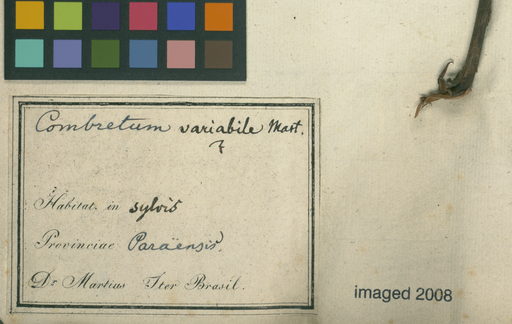 Combretum variabile Mart.
Habitat in sylvis
Provinciae Paraënsis.
Dr Martius Iter Brasil.
imaged 2008